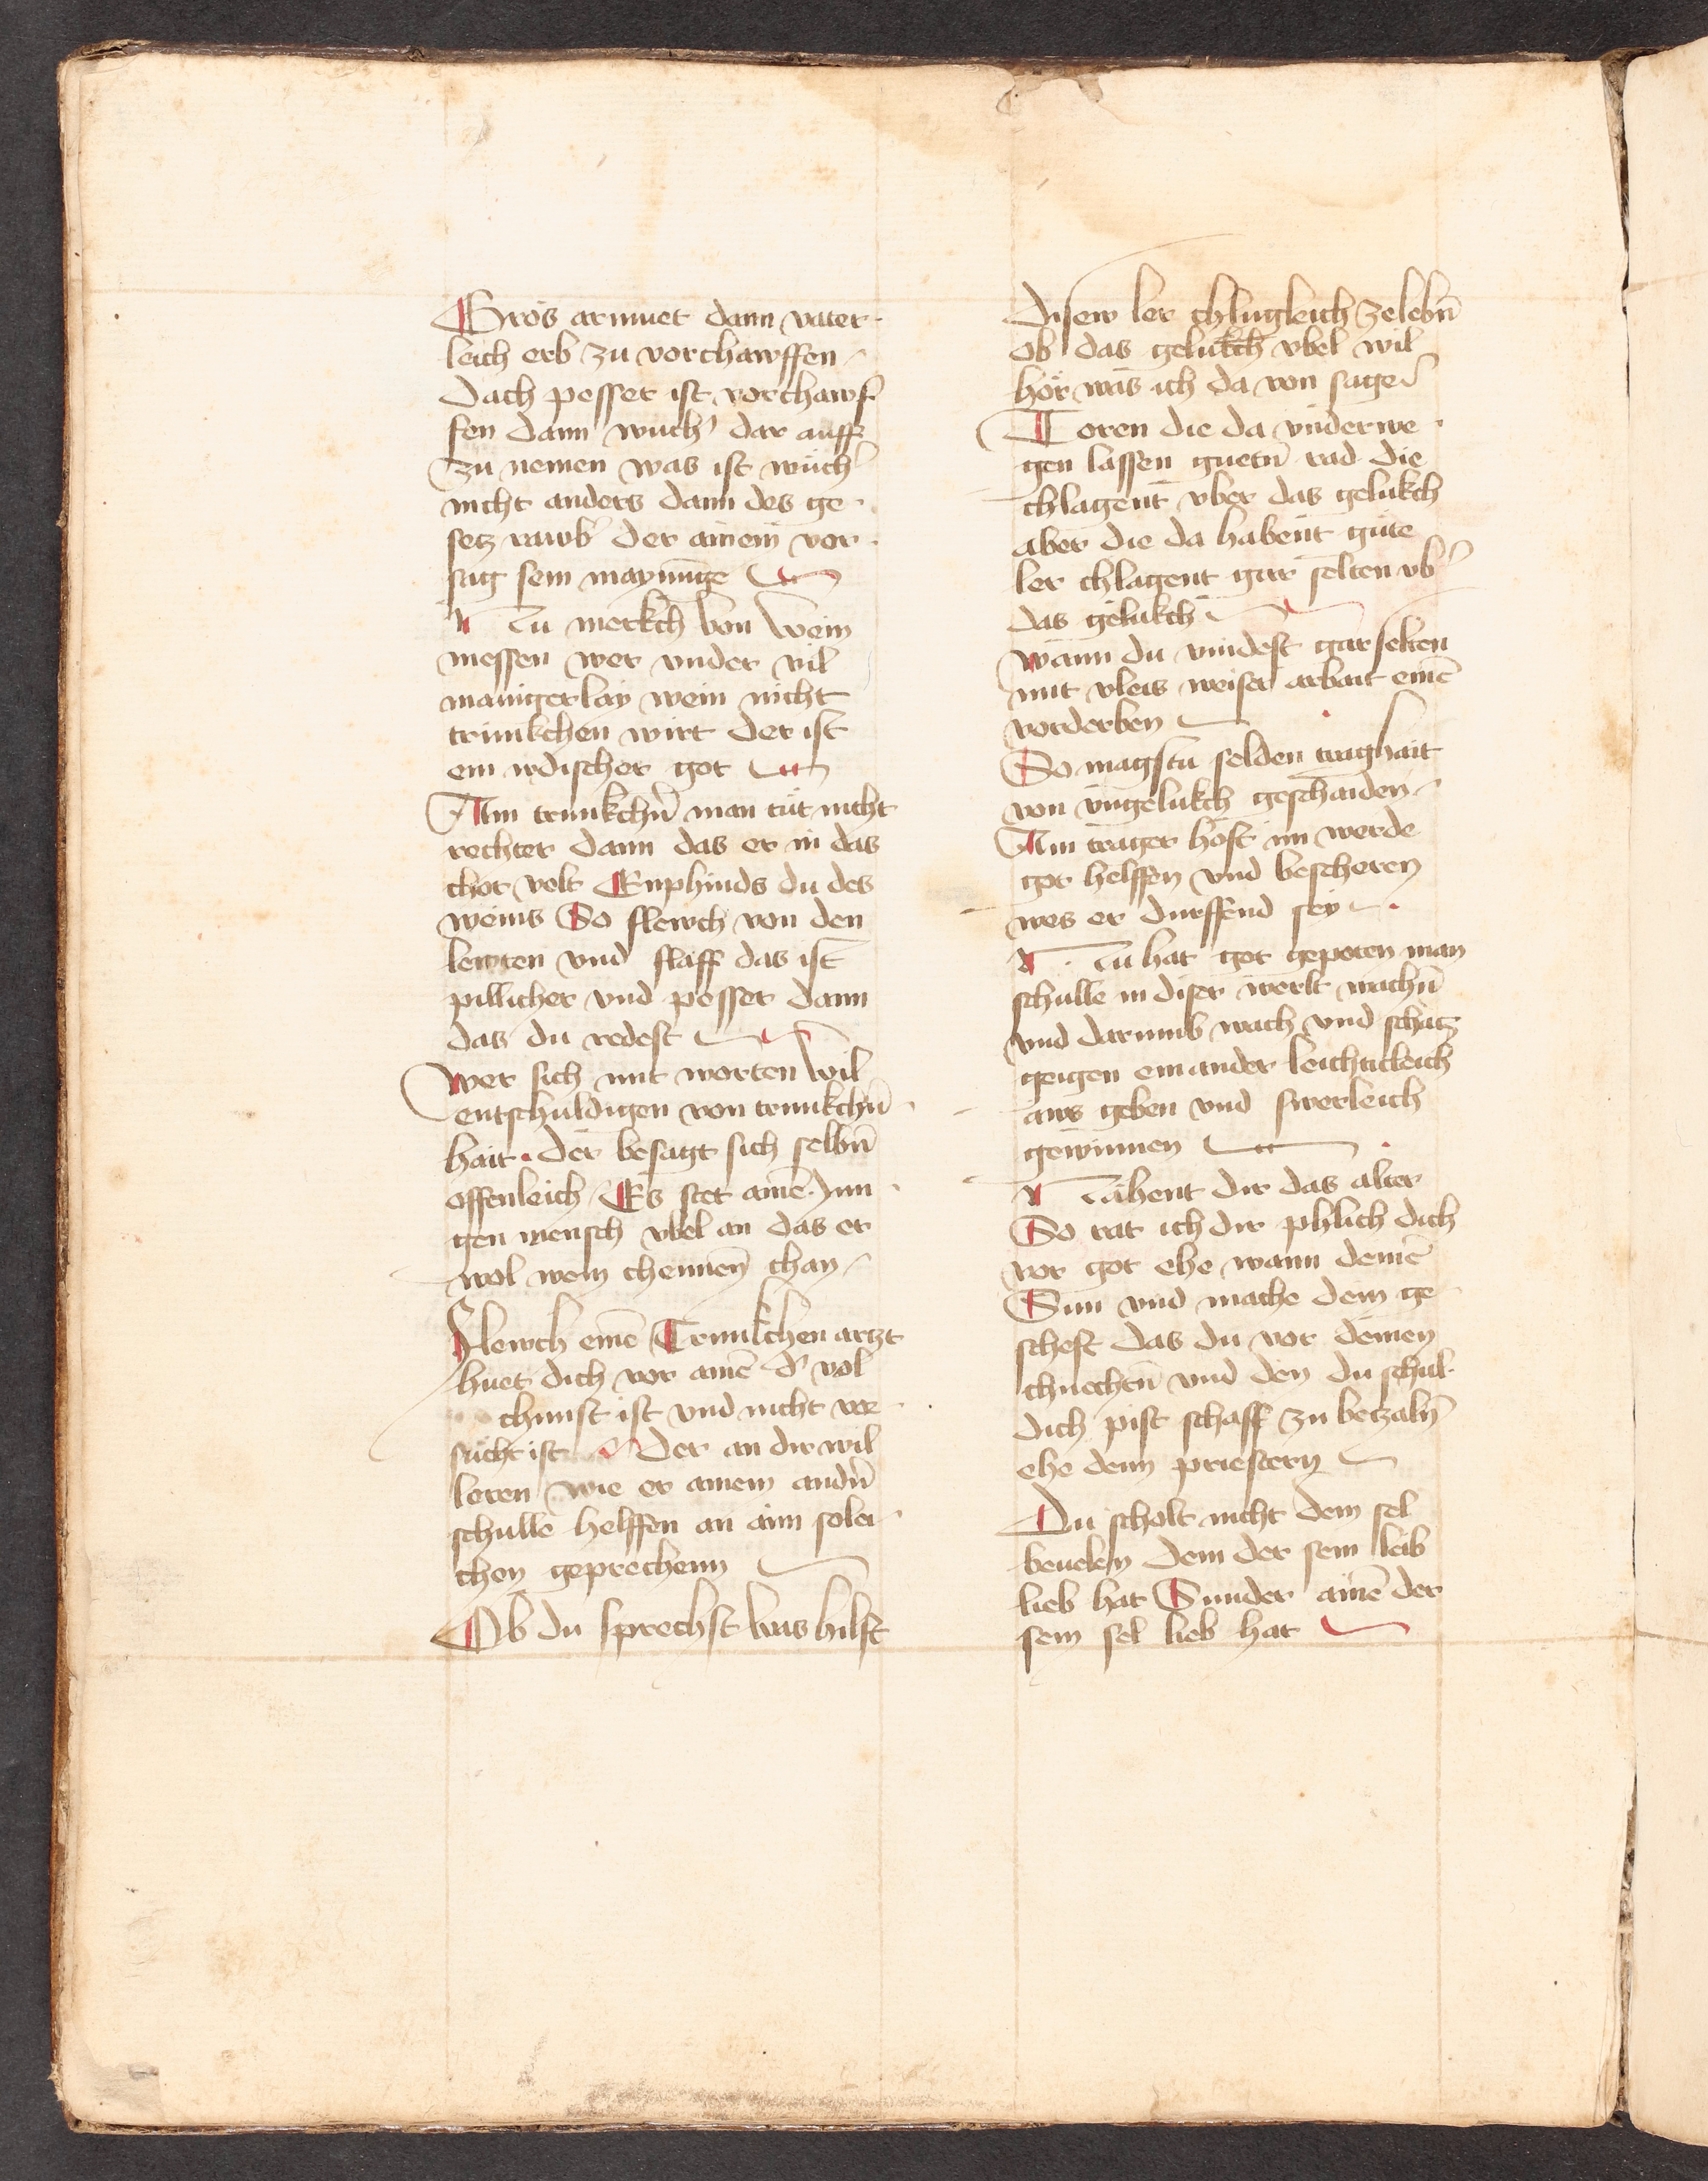 Gros armuet dann vater
leich erb zu vorchawffen
Dach pesser ist vorchawf
fen dann wuch' dar auff
zu nemen was ist wuch'
nicht anders dann des ge
setz rawb der ainem vor
sag sein maynunge
Nu merkch von wein
messen wer vnder vil
manigerlay wein nicht
trunkchen wirt der ist
ein irdischer got
Am trunkchn̄ man tut nicht
rechter dann das er in das
chor volt Enphinds du des
weins So flewch von den
lewten vnd slaff das ist
pillicher vnd pesser dann
das du redest
wer sich mit worten wil
entschuldigen von trunkchn̄
hait · der besagt sich selbn̄
offenleich Es stet aine Jun
gen mensch vbel an das er
wol wein chennen chan
Flewch eine Trunkchen artzt
huet dich vor aine d' vol
chunst ist vnd nicht vor
sucht ist Der an dir wil
leren wie er ainem andn̄
schulle helffen an aim solei
chen geprechenn
Ob du sprechst was hilft
disew ler chlugleich zelebn̄
ob das gelukch vbel wil
hör was ich da von sage
Toren die da vnderwe
gen lassen guetn̄ rad die
chlagent vber das gelukch
aber die da habent gute
ler chlagent gar selten vb'
das gelukch
wann du vindest gar selten
mit vleis weiser arbait eine
vorderben
So magstu selden traghait
von vngelukch geschaiden
Ain trager hoft im werde
got helffen vnd bescheren
wes er durffend sey
Nu hat got gepoten man
schulle in diser werlt wachn̄
vnd darumb wach vnd schatz
geigen einander leichticleich
aws geben vnd swerleich
gewinnen
Nahent dir das alter
So rat ich dir phlich dich
vor got ehe wann deine
Sun vnd mache dein ge
scheft das du vor deinen
chnechtn̄ vnd den du schul
dich pist schaff zu betzaln̄
ehe denn priestern
Du scholt nicht dem sel
beuelen dem der sein leib
lieb hat Sunder aine der
sein sel lieb hat